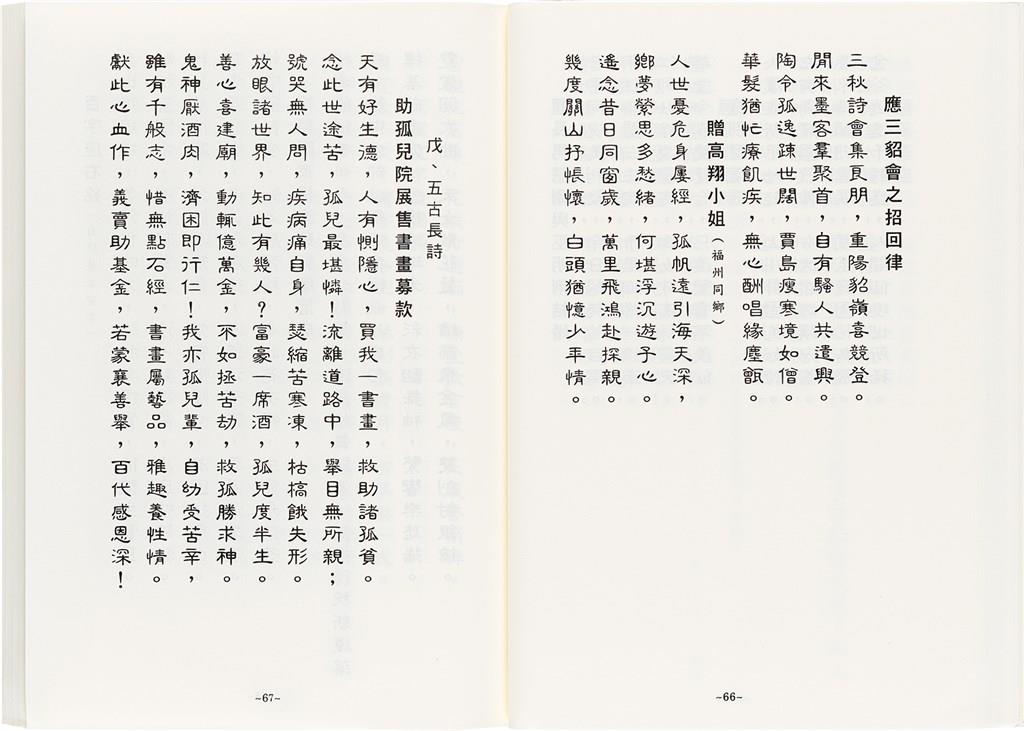 應三貂會之招回律
三秋詩會集良朋，重陽貂嶺喜競登。
閒來墨客羣聚首，自有騷人共遣興。
陶令孤逸疎世闊，賈島瘦寒境如僧。
華髮猶忙療飢疾，無心酬唱緣塵甑。
贈高翔小姐（福州同鄉）
人世憂危身屢經，孤帆遠引海天深，
鄉夢縈思多愁緒，何堪浮沉遊子心。
遙念昔日同窗歲，萬里飛鴻赴探親。
幾度關山抒悵懷，白頭猶憶少年情。
~66~
戊、五古長詩
助孤兒院展售書畫募款
天有好生德，人有惻隱心，買我一書畫，救助諸孤貧。
念此世途苦，孤兒最堪憐！流離道路中，舉目無所親；
號哭無人問，疾病痛自身，瑟縮苦寒凍，枯槁餓失形。
放眼諸世界，知此有幾人？富豪一席酒，孤兒度半生。
善心喜建廟，動輒億萬金，不如拯苦劫，救孤勝求神。
鬼神厭酒肉，濟困即行仁！我亦孤兒輩，自幼受苦辛，
雖有千般志，惜無點石經，書畫屬藝品，雅趣養性情。
獻此心血作，義賣助基金，若蒙襄善舉，百代感恩深！
~67~